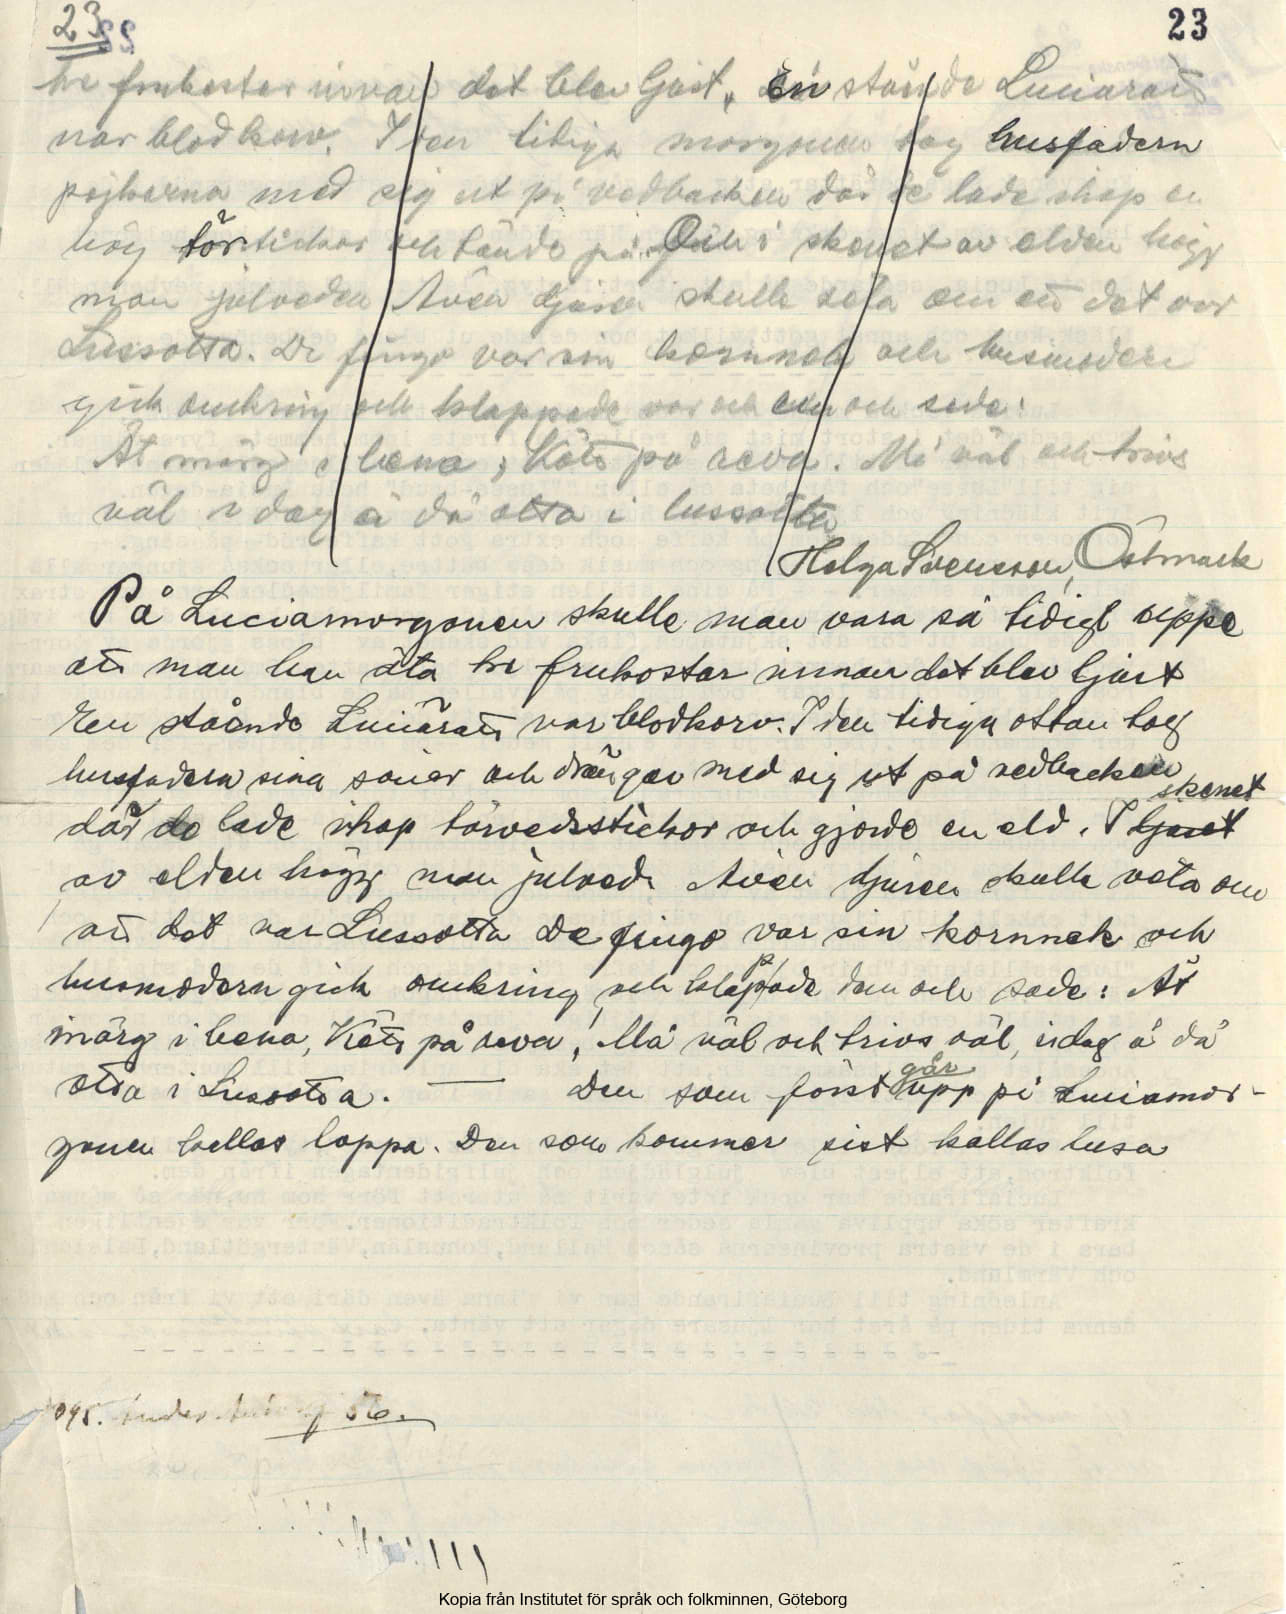 23
23
tre frukostar innan det blev ljust. En stående Luciarätt
var blodkorv. I den tidiga morgonen tog husfadern
pojkarna med sig ut på vedbacken där de lade ihop en
hög törstickor och tände på. Och i skenet av elden högg
man julveden Även djuren skulle veta om att det var
Lussotta. De fingo var sin kornnek och husmodern
gick omkring och klappade var och en och sade:
Ät märg i bena, Kött på reva. Må väl och trivs
väl i dag ä dä otta i lussotta
Helga Svensson, Östmark
På Luciamorgonen skulle man vara så tidigt uppe
att man han äta tre frukostar innan det blev ljust
En stående Luciärätt var blodkorv. I den tidiga ottan tog
husfadern sina söner och drängar med sig ut på vedbacken
skenet
där de lade ihop törvedsstickor och gjorde en eld. I ljuset
av elden högg man julved. Även djuren skulle veta om
att det var Lussotta De fingo var sin kornnek och
husmodern gick omkring och klappade dem och sade: Ät
märg i bena, Kött på reva, Må väl och trivs väl, idag ä dä
otta i Lussotta. — Den som först går upp på Luciamor-
gonen kallas loppa. Den som kommer sist kallas lusa
56.
Kopia från Institutet för språk och folkminnen, Göteborg